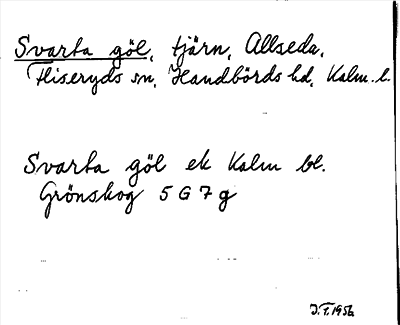 Svarta göl, tjärn, Allseda,
Fliseryds sn, Handbörds hd, Kalm. l.
Svarta göl ek Kalm bl.
Grönskog 5 G 7 g
J.T. 1956